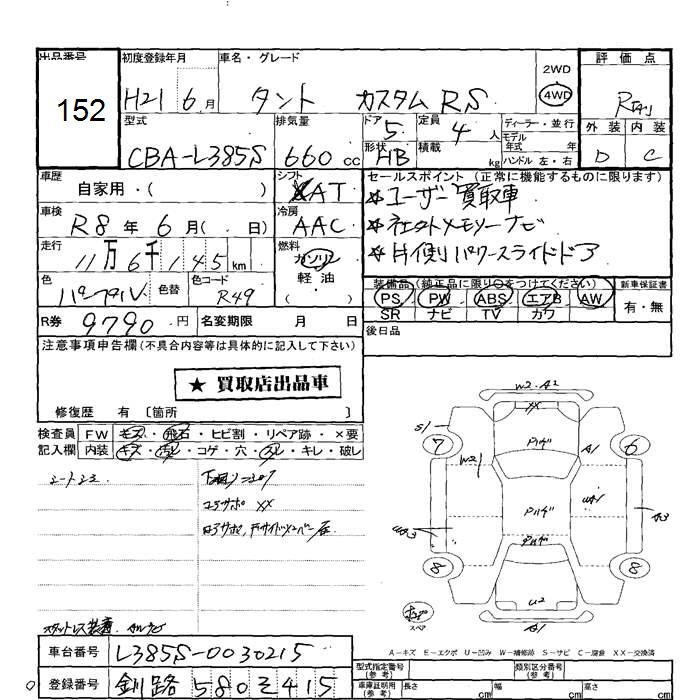 出品番号
152
初度登録年月
H21 6月
車名・グレード
タント カスタム RS
2WD
4WD
評価点
R
外装 内装
D C
型式
CBA-L385S
排気量
660 cc
ドア
5
定員
4 人
形状
HB
積載
kg
ディーラー・並行
モデル
年式 年
ハンドル 左・右
車歴
自家用・( )
シフト
AT
セールスポイント (正常に機能するものに限ります)
*ユーザー買取車
*社外メモリーナビ
*片側パワースライドドア
車検
R8年 6月( . 日)
冷房
AAC
走行
11万6千145km
燃料
ガソリン
軽油
( )
色
色替
色コード
R49
装備品 (純正品に限り○をつけてください)
PS PW ABS エアB AW
SR ナビ TV カワ
新車保証書
有・無
R券 9790.円
名変期限 月 日
後日品
注意事項申告欄(不具合内容等は具体的に記入して下さい)
★ 買取店出品車
修復歴 有 〔箇所 〕
検査員 FW キズ・飛石・ヒビ割・リペア跡・×要
記入欄 内装 キズ・汚レ・コゲ・穴・スレ・キレ・破レ
W2・A2
XX
S1
7
6
A1
W21
A3
8
8
U2
A1
スペア
A-キズ E-エクボ U-凹み W-補修跡 S-サビ C-腐食 XX-交換済
スタットレス装着
車台番号 L385S-0030215
登録番号 釧路 580 そ 415
型式指定番号
(参考)
類別区分番号
(参考)
車庫証明用
(参考)
長さ cm 幅 cm 高さ cm